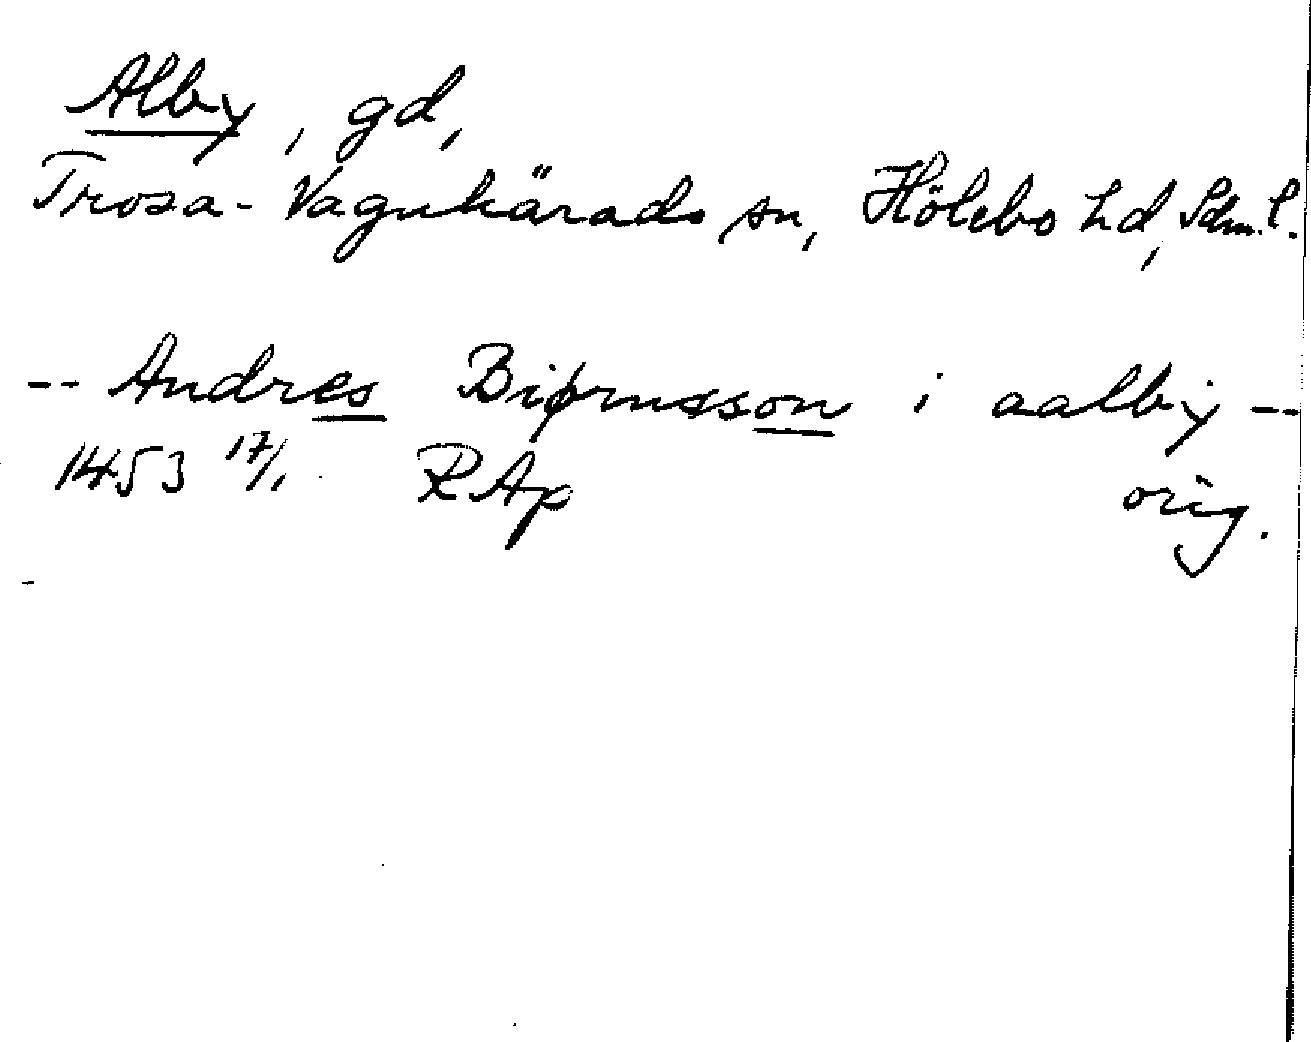 Alby, gd,
Trosa-Vagnhärads sn, Hölebo hd, Sdm. l.
-- Andres Biørnsson i aalby --
1453 17/1 RAp orig.